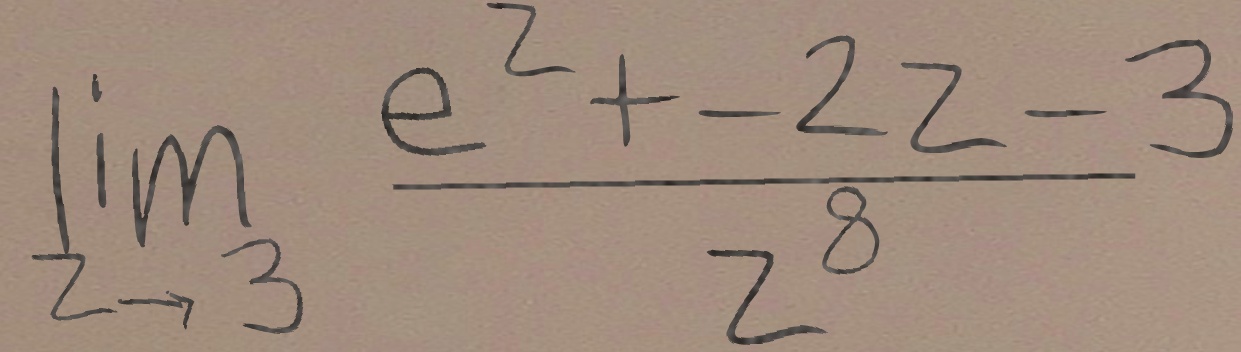 \lim_{z \to 3} \frac{e^z + -2z - 3}{z^8}